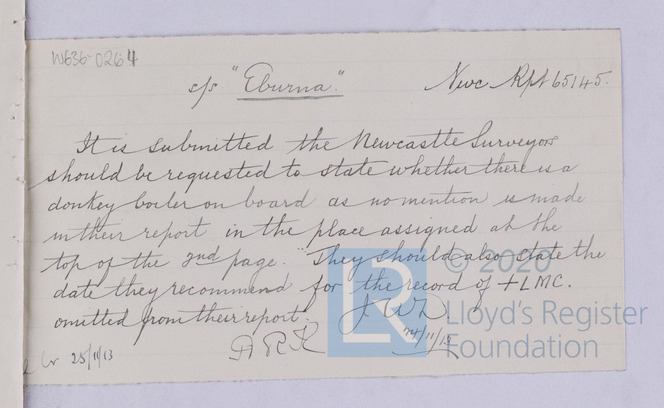 W636-0264
s/s "Eburna." Newc Rpt 65145.
It is submitted the Newcastle Surveyors
should be requested to state whether there is a
donkey boiler on board as no mention is made
in their report in the place assigned at the
top of the 2nd page. They should also state the
date they recommend for the record of +LMC.
omitted from their report.
J.W.D.
24/11/13
25/11/13
© 2020
LR
Lloyd's Register
Foundation